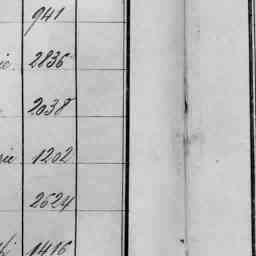 941
ie. 2836
2038
sie 1202
2624
1416